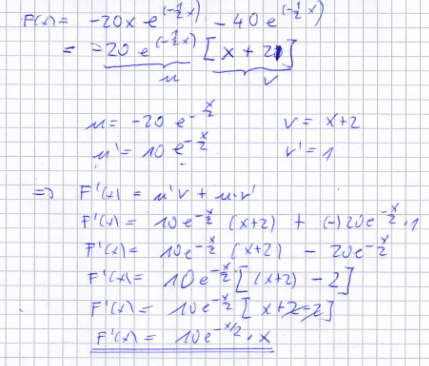 F(x) = -20x e^(-½x) - 40 e^(-½x)
= -20 e^(-½x) [x + 2]
u v
u = -20 e^-x/2 v = x+2
u' = 10 e^-x/2 v' = 1
=> F'(x) = u'v + u·v'
F'(x) = 10e^-x/2 (x+2) + (-)20e^-x/2 · 1
F'(x) = 10e^-x/2 (x+2) - 20e^-x/2
F'(x) = 10e^-x/2 [(x+2) - 2]
F'(x) = 10e^-x/2 [x+2-2]
F'(x) = 10e^-x/2 · x